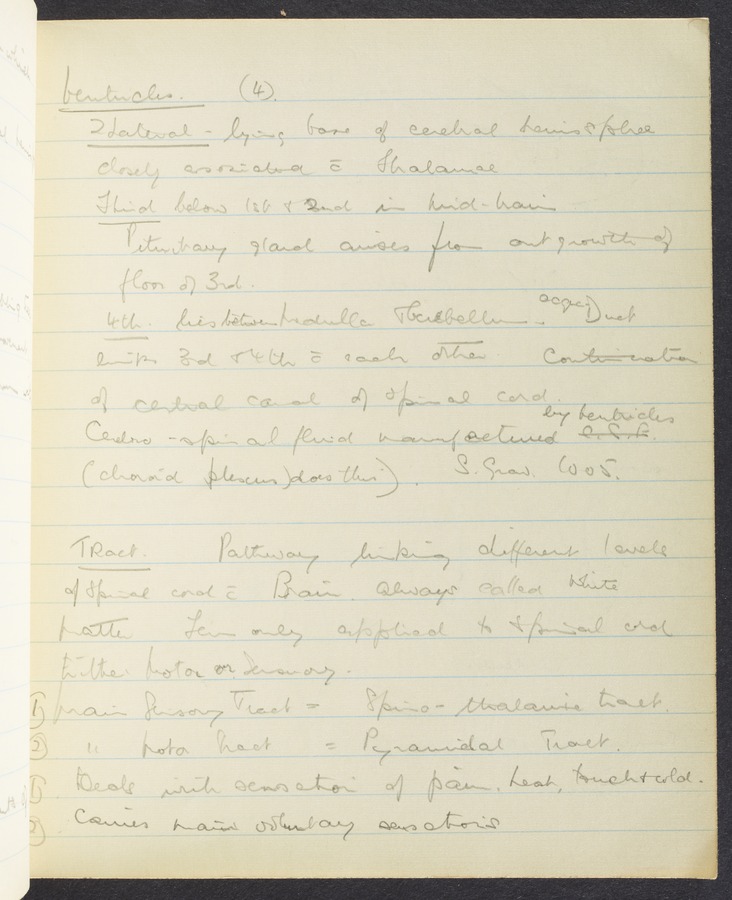 Ventricles. (4).
2 Lateral - lying base of cerebral hemisphere
closely associated c̄ Thalamae
Third below 1st & 2nd in mid-brain
Pituitary gland arises from outgrowth of
floor of 3rd.
4th. lies between Medulla & Cerebellum. Duct
links 3rd & 4th c̄ each other. Continuation
of central canal of spinal cord.
Cedro-spinal fluid manufactured by Ventricles C.S.F.
(choroid plexus) does this). S. Grav. 1005.
TRact. Pathway linking different levels
of Spinal cord c̄ Brain. Always called White
Matter Term only applied to Spinal cord
Either Motor or Sensory.
1) Main Sensory Tract = Spino-thalamic tract.
2) " Motor tract = Pyramidal Tract.
1) Deals with sensation of pain, heat, touch & cold.
2) Carries main voluntary sensations